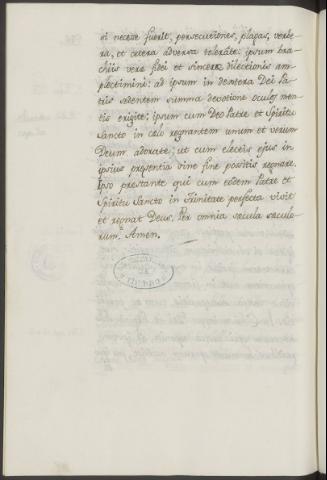 si necesse fuerit, persecutiones, plagas, verbe-
ra, et cetera adversa tolerate: ipsum bra-
chiis vere fidei et sincere dilectionis am-
plectimini: ad ipsum in dextera Dei Pa-
tris sedentem summa devotione oculos men-
tis erigite: ipsum cum Deo Patre et Spiritu
Sancto in celo regnantem unum et verum
Deum adorate; ut cum electis ejus in
ipsius presentia sine fine possitis regnare.
Ipso prestante qui cum eodem Patre et
Spiritu Sancto in Trinitate perfecta vivit
et regnat Deus, Per omnia secula seculo-
rum. Amen.